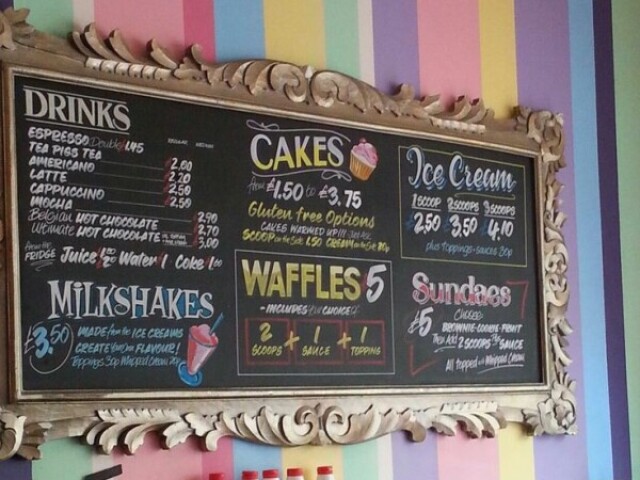 DRINKS
ESPRESSO Double 1.45
TEA PIGS TEA
AMERICANO 2.00
LATTE 2.20
CAPPUCCINO 2.50
MOCHA 2.50
Belgian HOT CHOCOLATE 2.90
Ultimate HOT CHOCOLATE 3.00
from the FRIDGE Juice Water £1 Coke
MILKSHAKES
£3.50
MADE from the ICE CREAMS
CREATE Your Own FLAVOUR!
Toppings 30p Whipped Cream
CAKES
from £1.50 to £3.75
Gluten free Options
CAKES WARMED UP
SCOOP on the Side 1.50 CREAM on the Side
WAFFLES 5
- INCLUDES Your CHOICE of
2 SCOOPS + 1 SAUCE + 1 TOPPING
Ice Cream
1 SCOOP 2 SCOOPS 3 SCOOPS
£2.50 £3.50 £4.10
plus toppings + sauces 30p
Sundaes
£5
CHOOSE
BROWNIE-COOKIE-FRUIT
Then Add 2 SCOOPS SAUCE
All topped with Whipped Cream